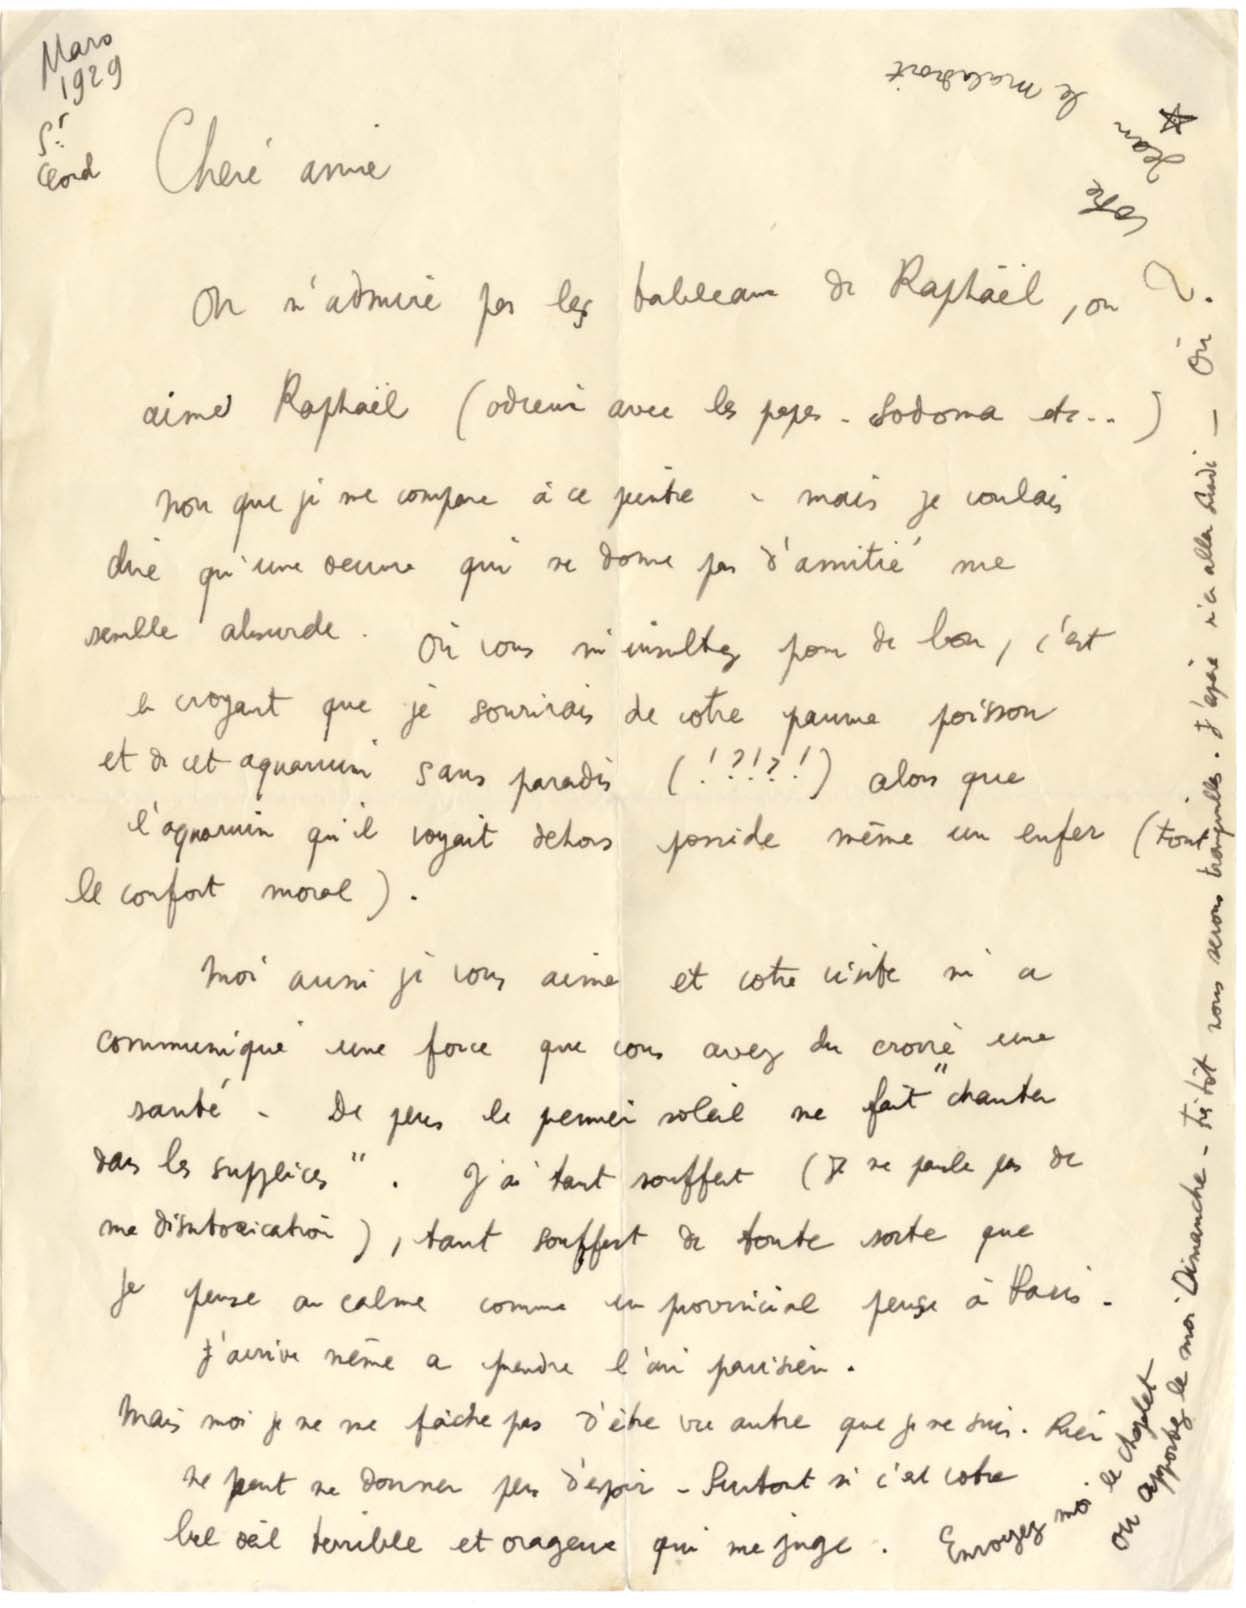 Mars
1929
St
Cloud
Chère amie
On n'admire pas les tableaux de Raphaël, on
aime Raphaël (odieux avec les papes - Sodoma etc..)
Non que je me compare à ce peintre - mais je voulais
dire qu'une oeuvre qui ne donne pas d'amitié me
semble absurde. Où vous m'insultez pour de bon, c'est
en croyant que je sourirais de votre pauvre poisson
et de cet aquarium sans paradis (!?!?!) alors que
l'aquarium qu'il voyait dehors possède même un enfer (tout
le confort moral).
Moi aussi je vous aime et votre visite m'a
communiqué une force que vous avez du croire une
santé - De plus le premier soleil me fait "chanter
dans les supplices". J'ai tant souffert (je ne parle pas de
ma désintoxication), tant souffert de toute sorte que
je pense au calme comme un provincial pense à Paris.
J'arrive même a prendre l'air parisien.
Mais moi je ne me fâche pas d'être vu autre que je ne suis. Rien
ne peut me donner plus d'espoir - Surtout si c'est votre
bel oeil terrible et orageux qui me juge. Envoyez moi le chapelet
ou apportez le moi Dimanche - très tôt nous serons tranquilles. J'espère n'a aller Lundi - Où ?
Votre
Jean
le maladroit